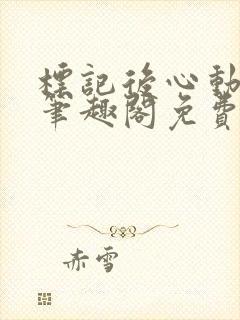 標記後心動
筆趣閣免費
赤雪